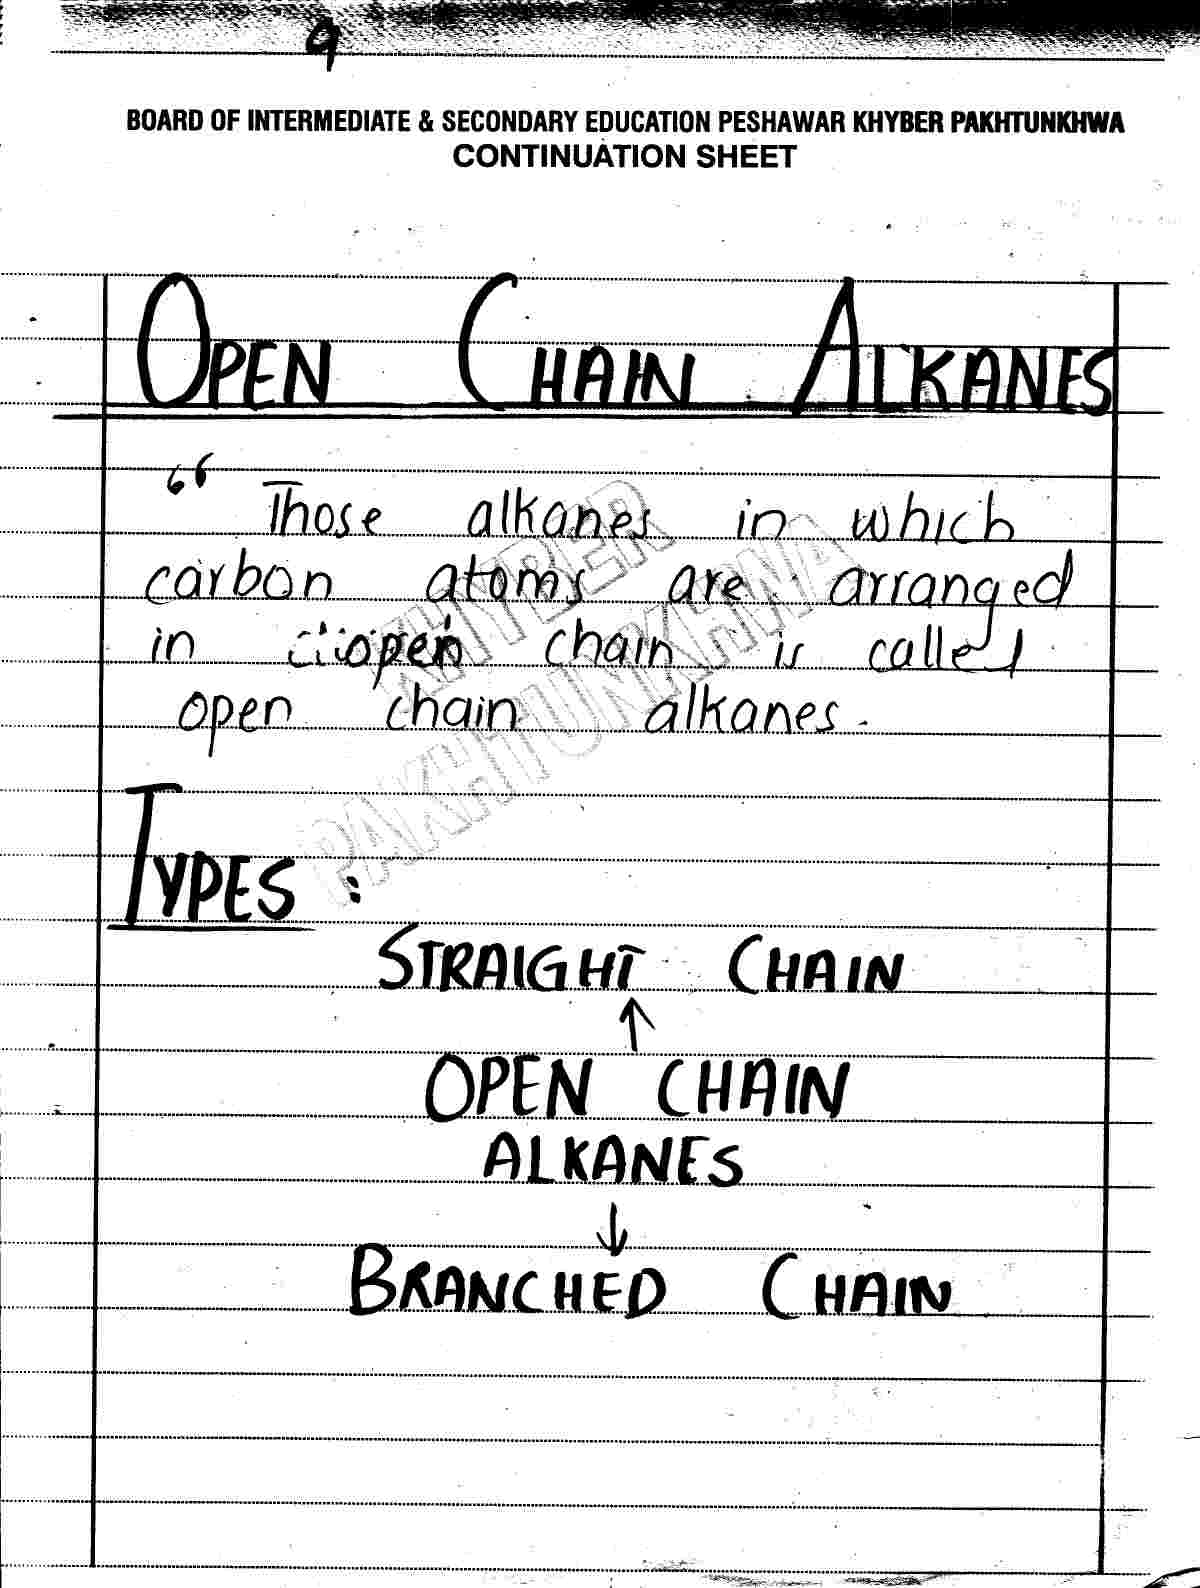 9
BOARD OF INTERMEDIATE & SECONDARY EDUCATION PESHAWAR KHYBER PAKHTUNKHWA
CONTINUATION SHEET
OPEN CHAIN ALKANES
“ Those alkanes in which
carbon atoms are arranged
in open chain is called
open chain alkanes.
KHYBER
PAKHTUNKHWA
TYPES :
STRAIGHT CHAIN
↑
OPEN CHAIN
ALKANES
↓
BRANCHED CHAIN